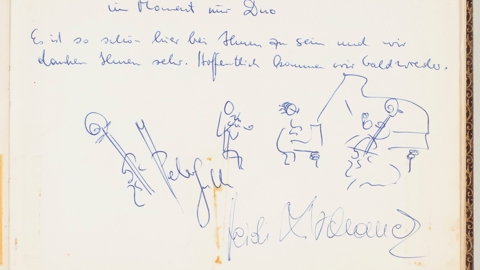 im Moment nur Duo
Es ist so schön hier bei Ihnen zu sein und wir
danken Ihnen sehr. Hoffentlich kommen wir bald wieder.
Peter